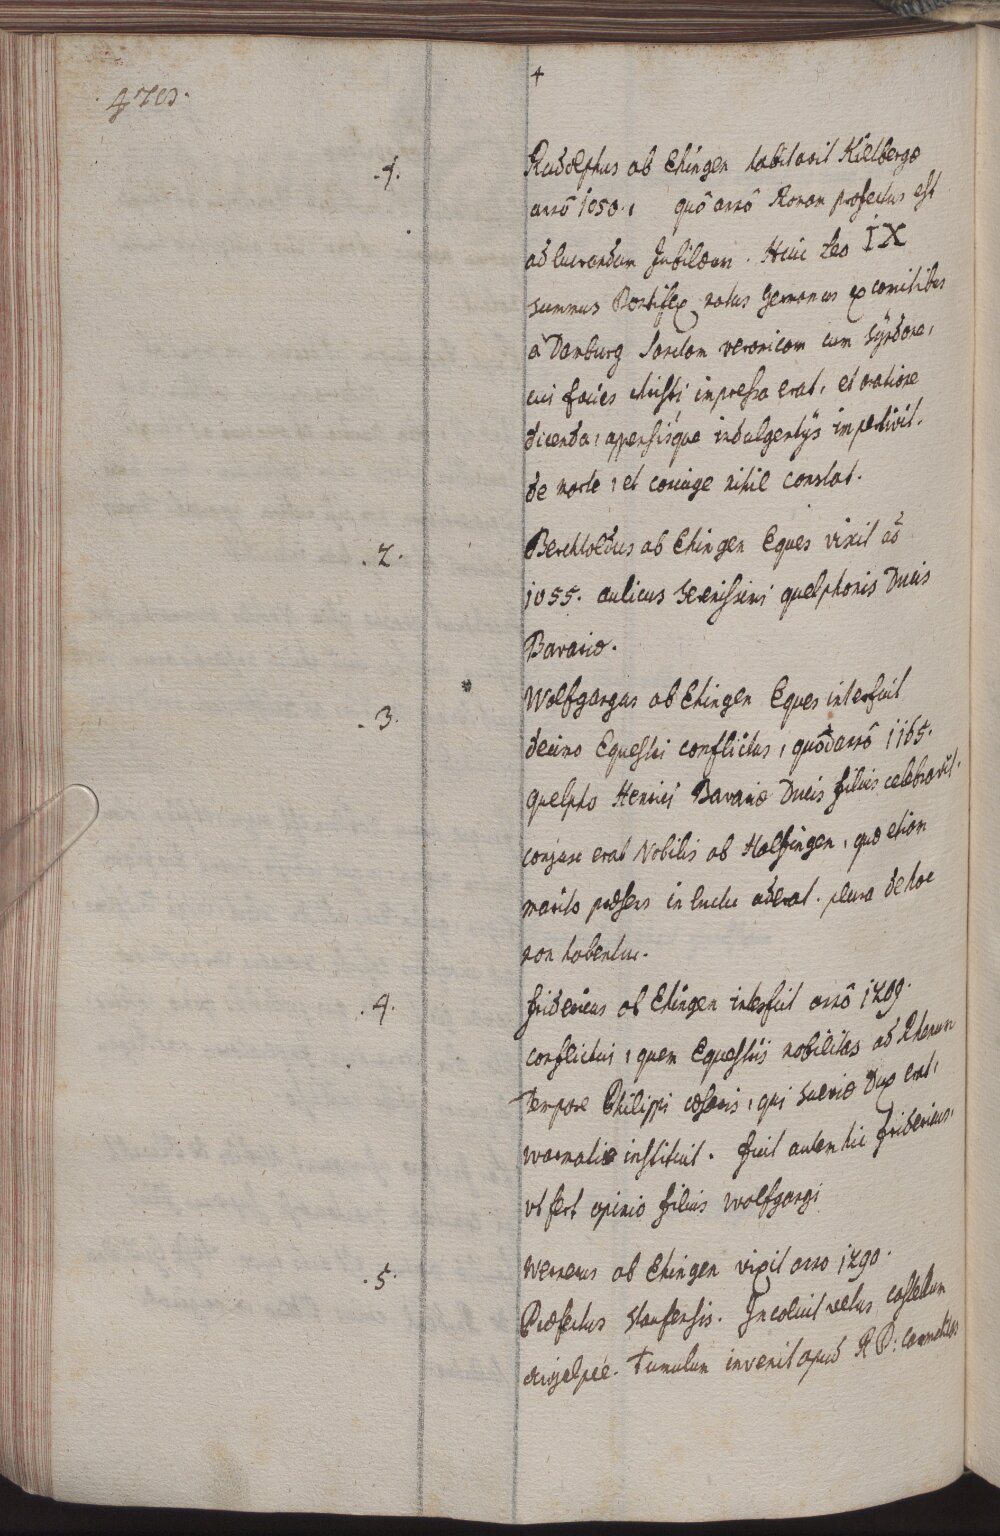 4703.
+
.1.
Rudolphus ab Ehingen habitavit Kilbergæ
anno 1050., quô annô Romam profectus est
ad lucrandum Jubilæum. Huic Leo IX
summus Pontifex natus Germanus ex comitibus
à Danburg Sanctam veronicam cum Syndone,
cui facies christi impressa erat, et oratione
dicenda, appensisque indulgentijs impertivit.
de morte, et coniuge nihil constat.
.2.
Berchtoldus ab Ehingen Eques vixit aô
1055. aulicus Serenissimi quelphonis Ducis
Bavariæ.
.3.
Wolfgangus ab Ehingen Eques interfuit
decimo Equestri conflictus, quod annô 1165.
quelpho Henrici Bavariæ Ducis filius celebravit.
conjunx erat Nobilis ab Halfingen, quæ etiam
marito præsens in luctu aderat. plura de hoc
non habentur.
.4.
fridericus ab Ehingen interfuit annô 1209.
conflictui, quem Equestris nobilitas ad Rhenum
tempore Philippi cæsaris, qui Sueviæ Dux erat,
wormatiæ instituit. fuit autem hic fridericus,
ut fert opinio filius wolfgangi
.5.
wernerus ab Ehingen vixit anno 1290.
Præfectus Staufensis. Incoluit vetus castellum
Tumulum invenit apud R P: Carmelitas